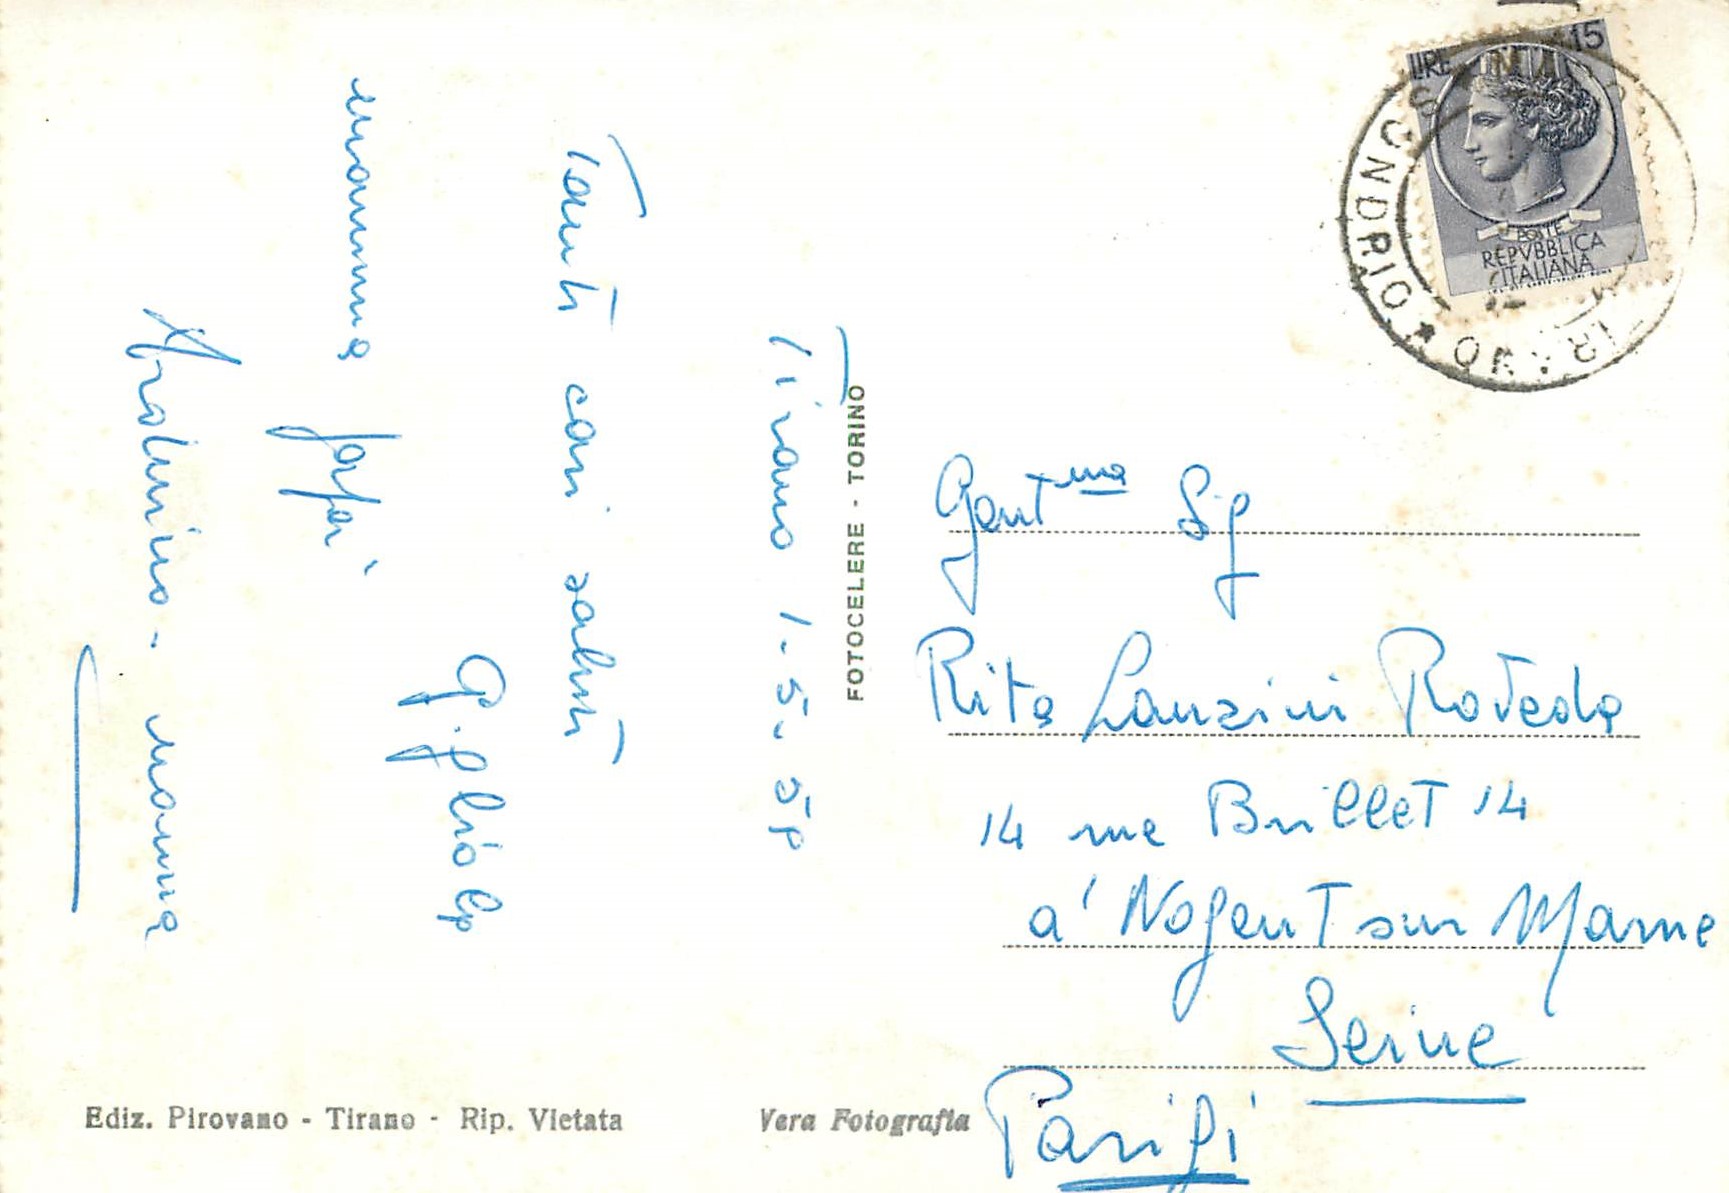 Tirano 1-5-59
Tanti cari saluti
mamma papà
mamma
LIRE 15
POSTE
REPVBBLICA
ITALIANA
TIRANO * SONDRIO
FOTOCELERE - TORINO
Gent ma Sig
Rita Lanzini Roveda
14 rue Brillet 14
a' Nogent sur Marne
Seine
Parigi
Ediz. Pirovano - Tirano - Rip. Vietata
Vera Fotografia